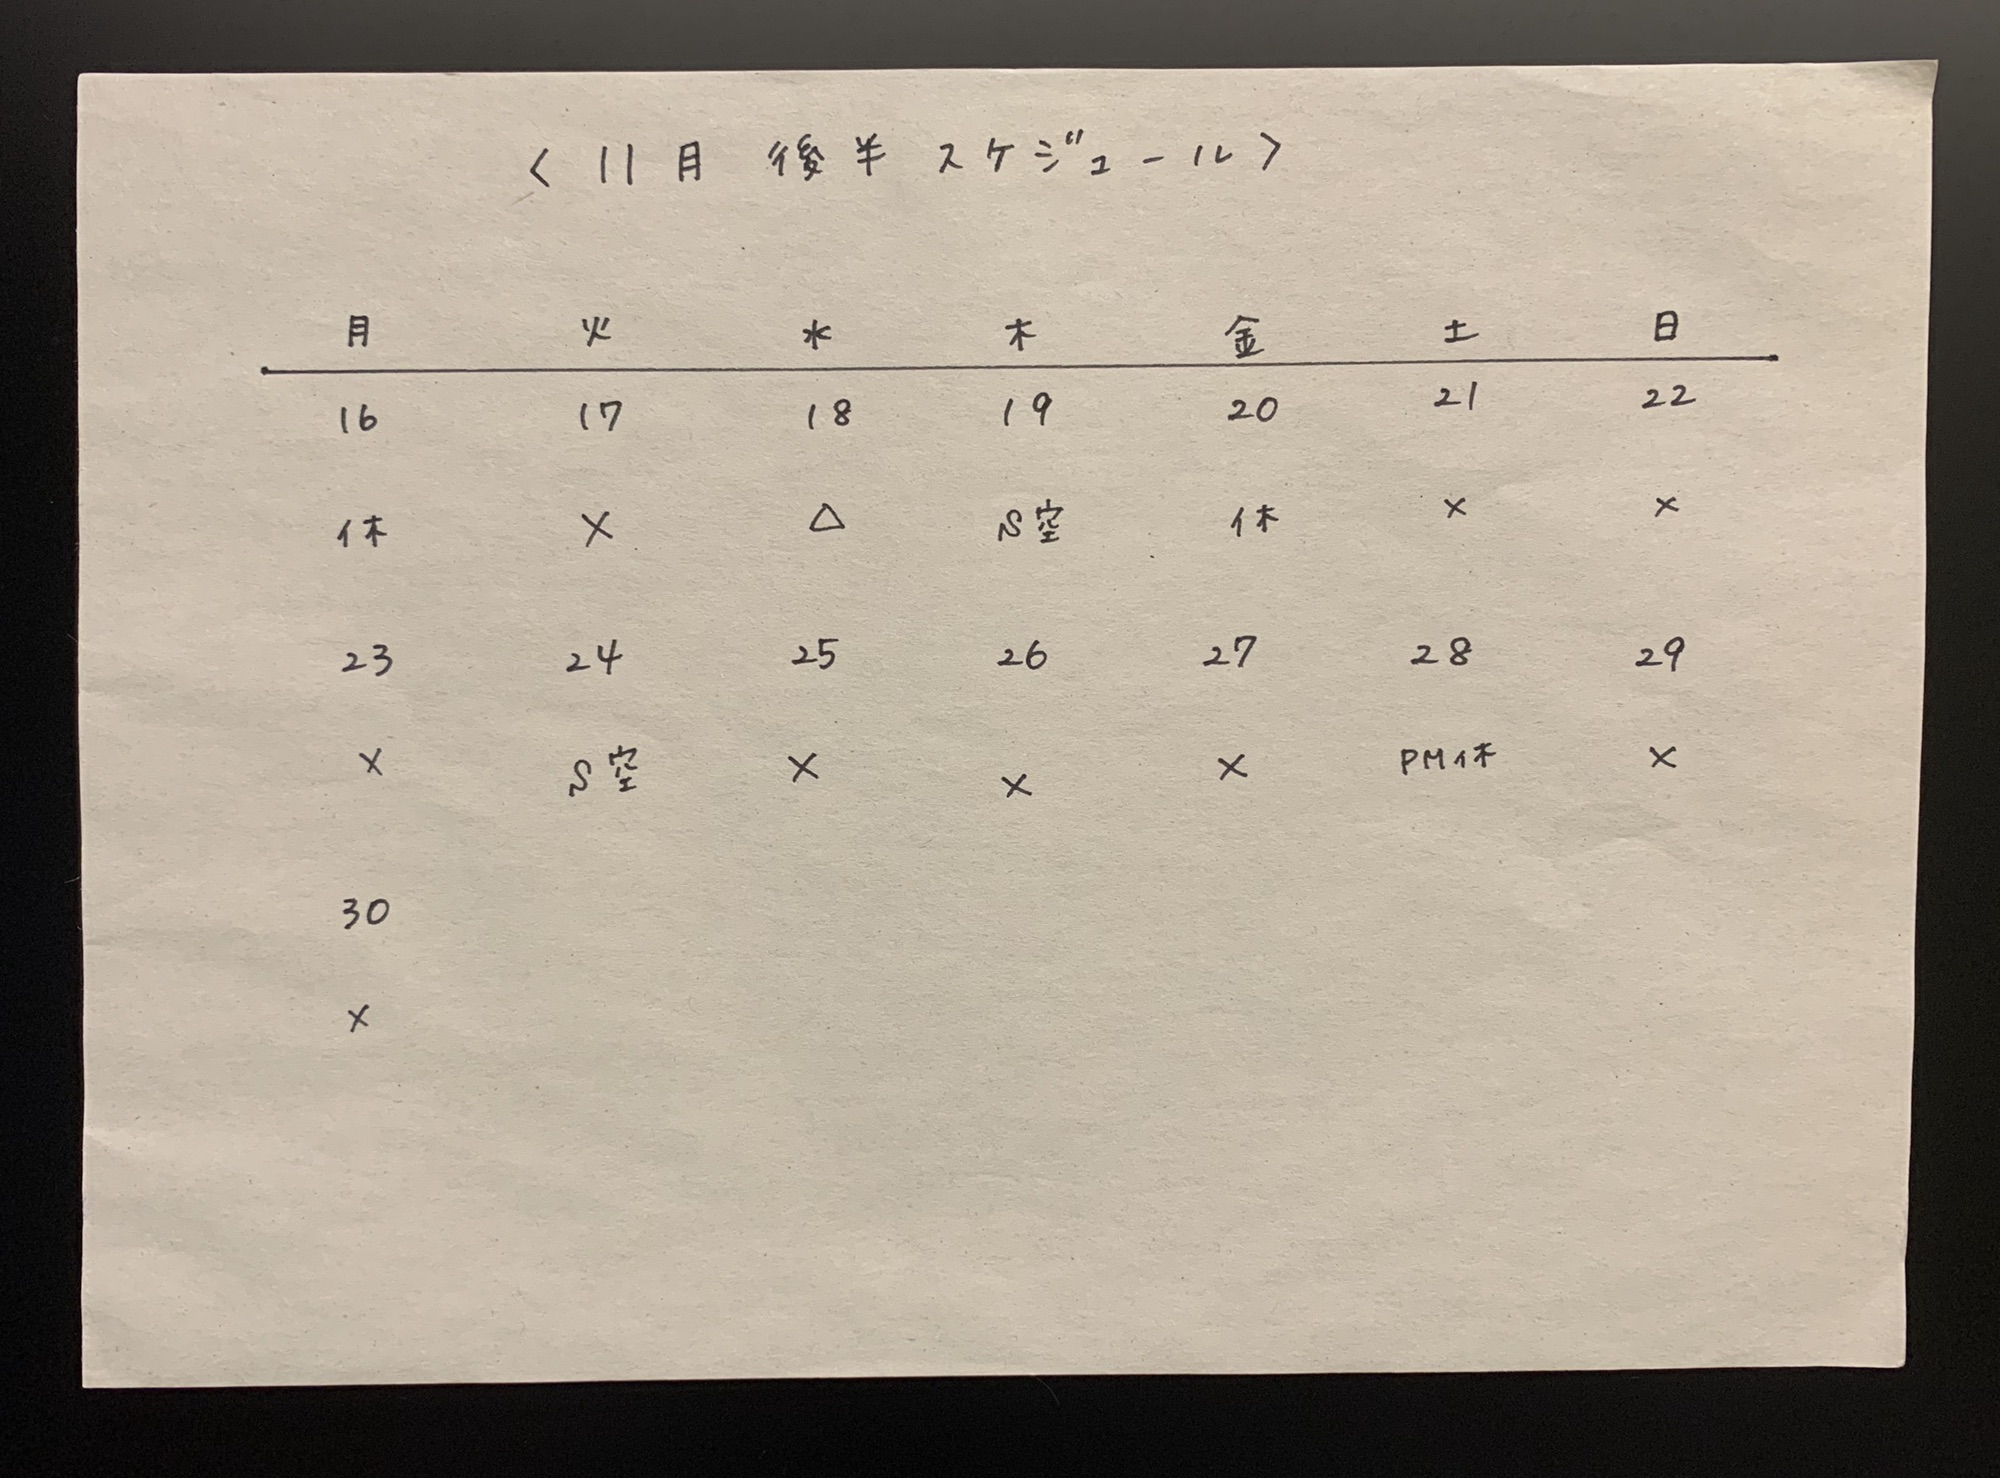 〈 11月 後半 スケジュール 〉
月 火 水 木 金 土 日
16 17 18 19 20 21 22
休 × △ S空 休 × ×
23 24 25 26 27 28 29
× S空 × × × PM休 ×
30
×